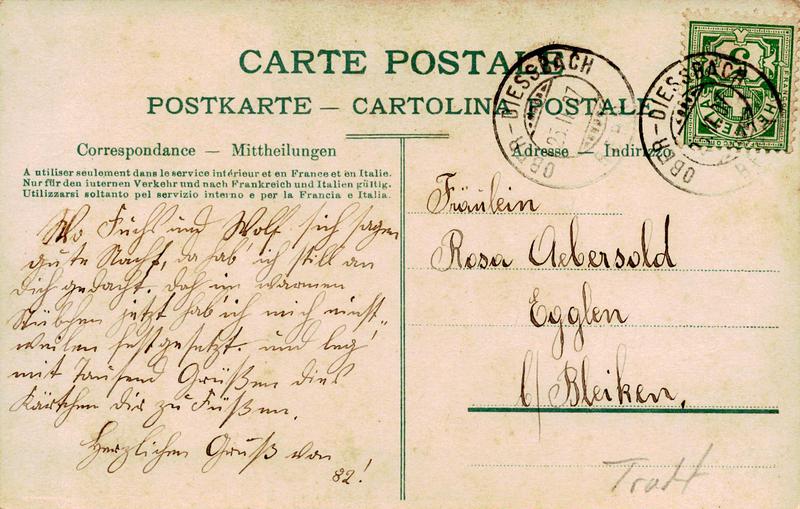 CARTE POSTALE
POSTKARTE — CARTOLINA POSTALE
Correspondance — Mittheilungen
Adresse — Indirizzo
A utiliser seulement dans le service intérieur et en France et en Italie.
Nur für den internen Verkehr und nach Frankreich und Italien gültig.
Utilizzarsi soltanto pel servizio interno e per la Francia e Italia.
OBER-DIESSBACH
OBER-DIESSBACH
HELVETIA
Wo Fuchs und Wolf sich sagen
gute Nacht, da hab' ich still an
Dich gedacht. Dah im warmen
Stübchen jetzt hab ich mich einst-
weilen festgesetzt. und leg'
mit Tausend Grüßen dies
Kärtchen dir zu Füßen.
Herzlichen Gruß von
82!
Fräulein
Rosa Aebersold
Egglen
b/ Bleiken,